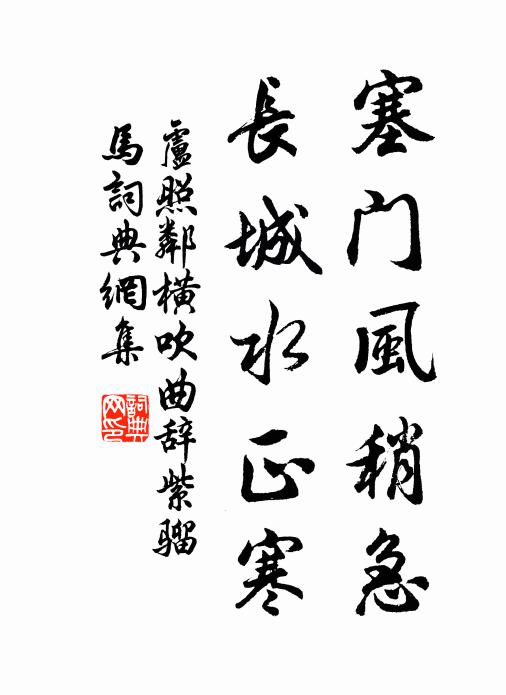 塞门風稍急
長城水正寒
盧照鄰橫吹曲辞紫騮
馬詞典網集
詞典
网印